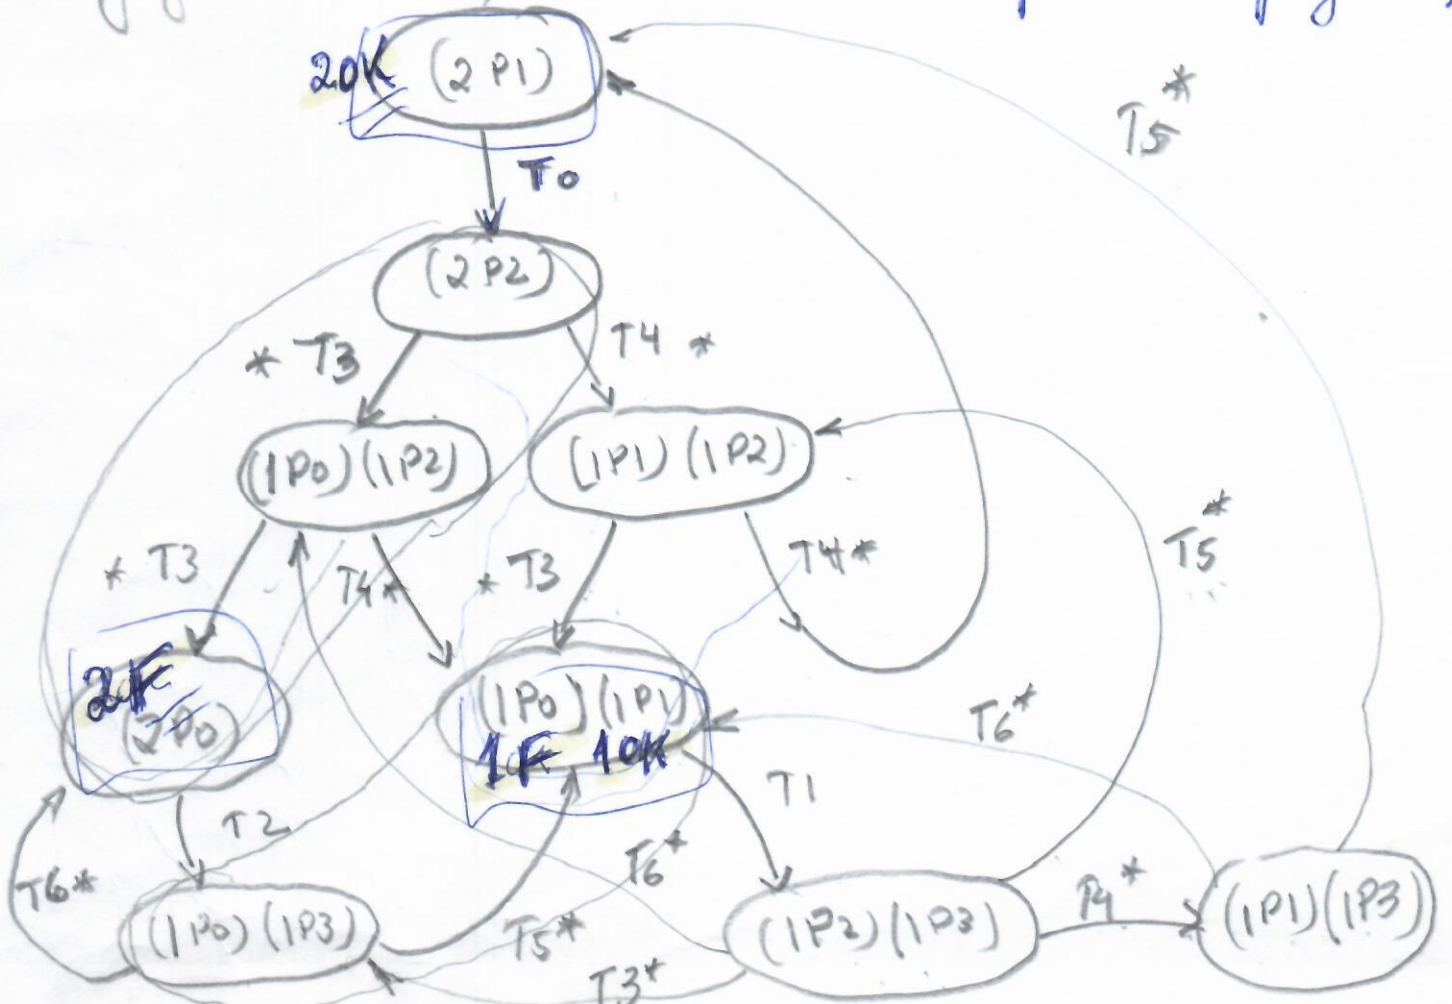 20K (2P1)
T5*
T0
(2P2)
* T3 T4 *
(1P0)(1P2) (1P1)(1P2)
* T3 T4* * T3 T4* T5*
2F (2P0)
(1P0)(1P1)
1F 10K
T6*
T2 T1
T6* T6*
(1P0)(1P3) T5* (1P2)(1P3) T4* (1P1)(1P3)
T3*